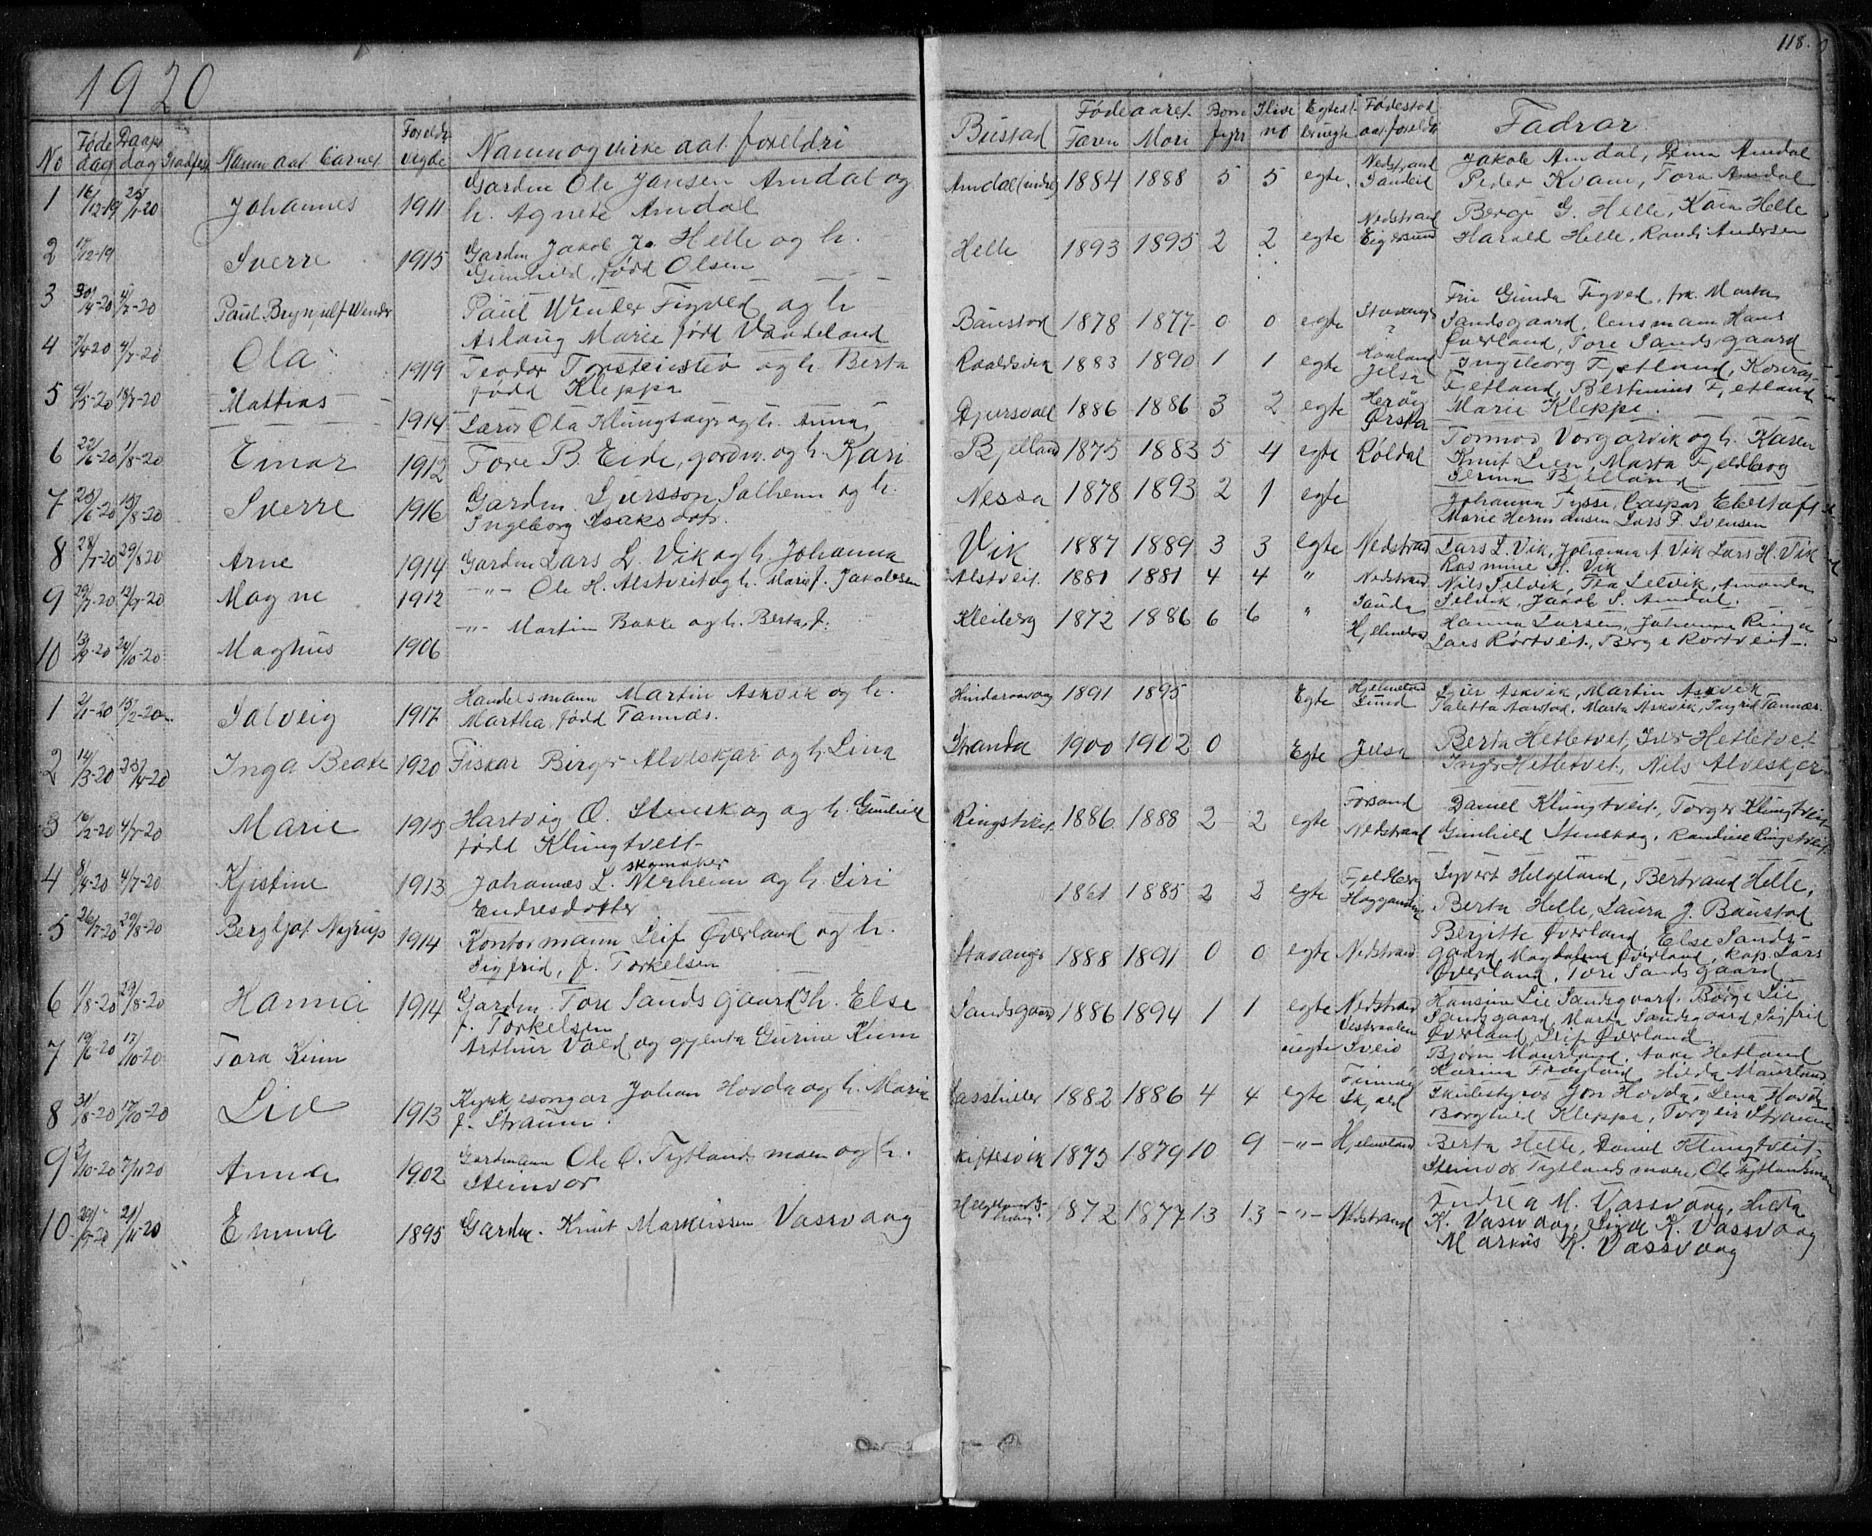 118.
1920
No Føde dag Daaps dag Stadfest Namn aat barnet Foreldr vigde Namn og virke aat foreldri Bustad Fødeaaret Faren Mori Born fyrr I live no Egte el. uegte Fødestad aat foreldr Fadrar
1 16/12-19 25/1-20 Johannes 1911 Gardm Ole Jansen Amdal og h. Agnete Amdal Amdal (indre) 1884 1888 5 5 egte. Nedstrand Sandeid Jakob Amdal, Dina Amdal
Peder Kvam, Tora Amdal
2 17/12-19 Sverre 1915 Gardm Jakob J. Helle og h.
Gunhild, født Olsen Helle 1893 1895 2 2 egte Nedstrand Eigersund Berge G. Helle, Kari Helle
Harald Helle, Randi Andersen
3 30/4-20 4/7-20 Paul Brynjulf Winder Paul Winder Tigved og h
Aslaug Marie født Vandeland Baustad 1878 1877 0 0 egte Stavanger ? Fru Gunda Tigved, frk. Marta
Sandsgaard, lensmann Hans
Øverland, Tore Sandsgaard
4 7/4-20 4/7-20 Ola 1919 Teodor Torsteinstev og h. Berta
født Kleppa Roaldsvik 1883 1890 1 1 egte Haaland Jelsa Ingeborg Fjetland, Konrad
Fjetland, Bertinius Fjetland
Marie Kleppe.
5 9/5-20 18/7-20 Mattias 1914 Lærer Ola Klungtøyr og h. Anna Djursvoll 1886 1886 3 2 egte Herøy Ørsta
6 22/6-20 1/8-20 Einar 1912 Tore B. Eide, gardm. og h. Kari Bjelland 1875 1883 5 4 egte Røldal Tormod Vorgarvik og h. Karen
Knut Lien, Marta Fjeldberg
Serina Bjelland
7 25/6-20 15/8-20 Sverre 1916 Gardm. Sjursson Solheim og h.
Ingeborg Isaksdotr. Nessa 1878 1893 2 1 egte Johanna Tysse, Caspar Ebestoft
Marie Hermansen Lars F. Svensen
8 28/7-20 29/8 20 Arne 1914 Gardm Lars L. Vik og h. Johanna Vik 1887 1889 3 3 egte Nedstrand Lars L. Vik, Johanna A. Vik Lars H. Vik
Rasmine H. Vik
9 29/7-20 12/9-20 Magne 1912 -"- Ole H. Alstveit og h. Marie J. Jakobsen Alstveit. 1881 1881 4 4 " Nedstrand Nils Selvik, Tea Selvik, Amanda
Selvik, Jakob S. Amdal.
10 13/9-20 24/10-20 Magnus 1906 -"- Martin Bakke og h. Berta, f. Kleiberg 1872 1886 6 6 " Sauda Hjelmeland Hanna Larsen, Johanna Ringa
Lars Rørtveit, Berge Rørtveit
1 2/1-20 15/2-20 Solveig 1917 Handelsmann Martin Askvik og h.
Martha, født Tannæs. Hindaravaag 1891 1895 Egte Hjelmeland Sund Sjur Askvik, Martin Askvik
Paletta Aarstad, Marta Askvik, Ingrid Tannæs.
2 14/3-20 25/4-20 Inga Beate 1920 Fiskar Birger Alveskjær og h. Lina Stranda 1900 1902 0 Egte Jelsa Berta Hetletvet, Iver Hetletvet
Inger Hetletvet, Nils Alveskjer
3 16/2-20 4/7-20 Marie 1915 Hartvig O. Stenskog og h. Gunhild
født Klungtveit Ringstveit 1886 1888 2 2 egte Forsand Nedstrand Daniel Klungtveit, Torger Klungtveit
Gunhild Stenskog, Randine Ringstveit.
4 8/4-20 4/7-20 Kjistine 1913 Johannes L. skomaker Nerheim og h. Siri
Endresdotter 1861 1885 2 2 egte Fjeldberg Sjvert Helgeland, Bertrand Helle,
Berta Helle, Laura J. Baustad
5 26/7-20 29/8-20 Bergljot Nyrup 1914 Kontormann Leif Øverland og h.
Sigfrid, f. Torkelsen Stavanger 1888 1891 0 0 egte Nedstrand Bergitte Øverland, Else Sands-
gaard, Magdalena Øverland, kap. Lars
Øverland, Tore Sandsgaard
6 1/8-20 29/8-20 Hanna 1914 Gardm. Tore Sandsgaard h. Else
f. Torkelsen Sandsgaard 1886 1894 1 1 egte Nedstrand Hansine Lie Sandsgaard, Børge Lie
Sandsgaard, Marta Sandsgaard, Sigfrid
Øverland, Leif Øverland.
7 19/6-20 17/10-20 Tora Kinn Arthur Vold og gjenta Gurine Kinn uegte Vestraalen Sveio Bjørn Maurland, Aake Hetland
Karina Frøysland, Hilda Maurland.
8 31/8-20 17/10-20 Liv 1913 Kyrkjesongar Johan Hovda og h. Maria
f. Straum. 1882 1886 4 4 egte Skulestyrar Jon Hovda, Lena Hovda
Borghild Kleppa, Torgeir Straum
9 3/10-20 7/11 20 Anna 1902 Gardmann Ole O. Tytlandsmoen og h.
Steinvor 1875 1879 10 9 -"- Hjelmeland Berta Helle, Daniel Klungtveit
Steinvor Tytlandsmoen, Ole Tytlandsmoen
10 29/9-20 21/11-20 Emma 1895 Gardm. Knut Markussen Vassvaag 1872 1877 13 13 -"- Nedstrand Andrea M. Vassvaag, Herta
K. Vassvaag, Sigvl K. Vassvaag
Markus K. Vassvaag